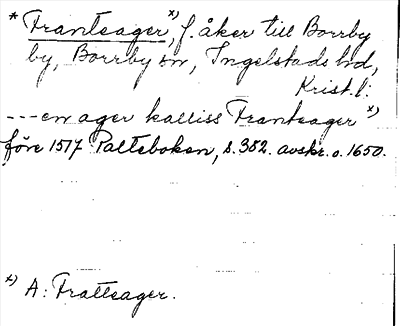 * Frantsager x), f. åker till Borrby
by, Borrby sn, Ingelstads hd,
Krist.l.
---en ager kalliss Frantsager x)
före 1517 Palteboken, s. 382. avskr. o. 1650.
x) A: Frattsager.